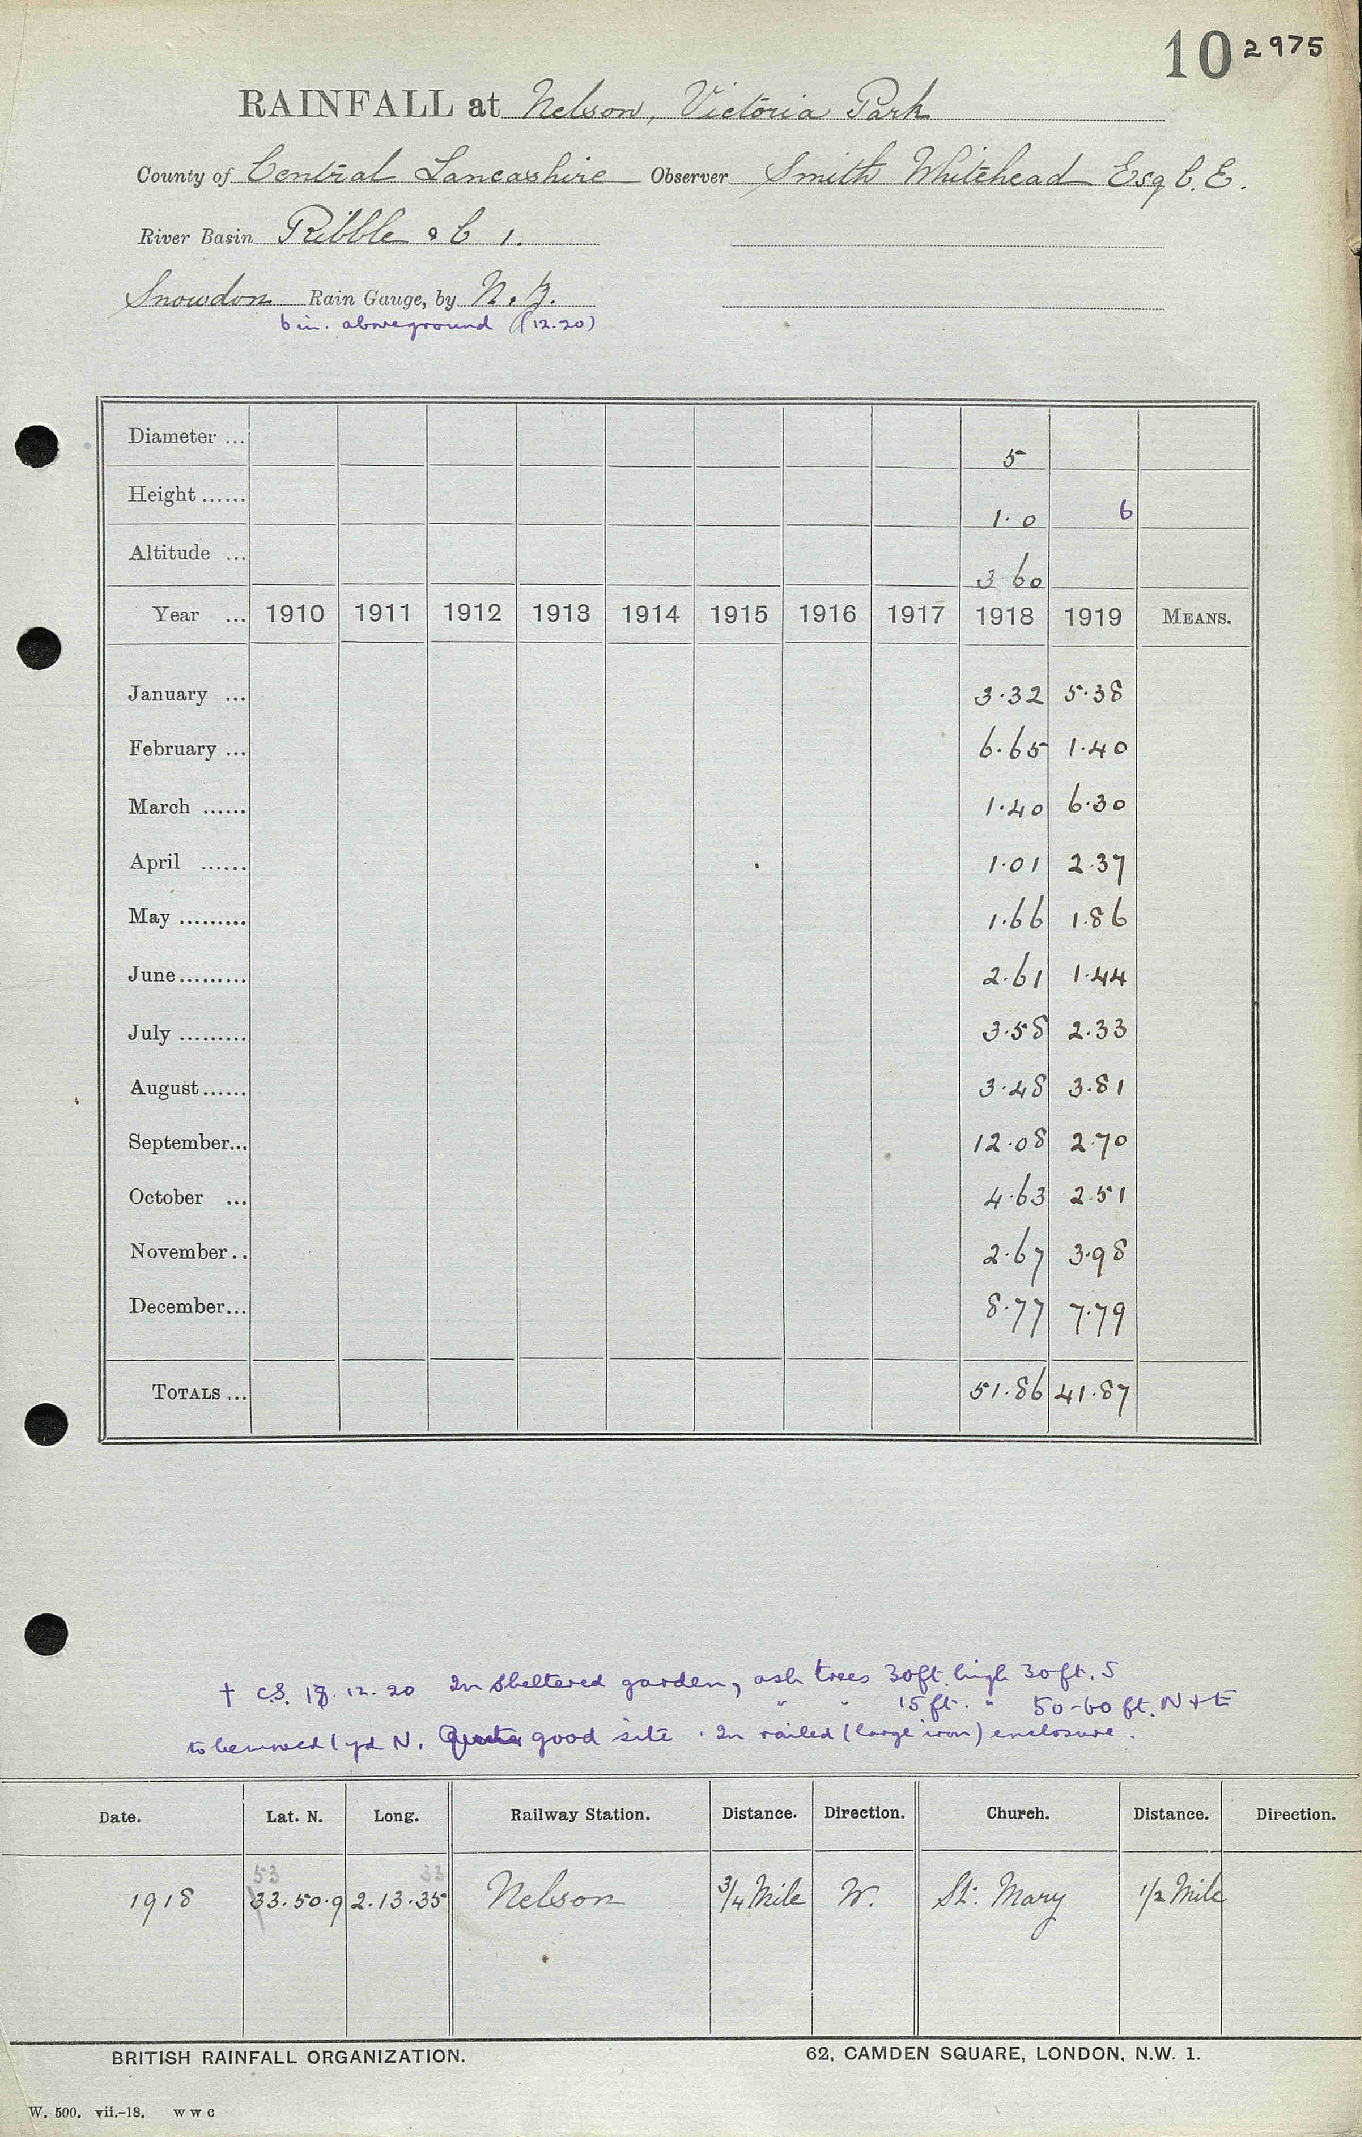 10 2975
RAINFALL at Nelson, Victoria Park
County of Central Lancashire Observer Smith Whitehead Esq C.E.
River Basin Ribble & C 1.
Snowdon Rain Gauge, by N. Z.
6 in. above ground (12.20)
Diameter ... 5
Height ...... 1.0 6
Altitude ... 360
Year ... 1910 1911 1912 1913 1914 1915 1916 1917 1918 1919 MEANS.
January ... 3.32 5.38
February ... 6.65 1.40
March ...... 1.40 6.30
April ...... 1.01 2.37
May ......... 1.66 1.86
June......... 2.61 1.44
July ......... 3.58 2.33
August...... 3.48 3.81
September... 12.08 2.70
October ... 4.63 2.51
November.. 2.67 3.98
December... 8.77 7.79
TOTALS ... 51.86 41.87
† C.S. 12.20 In sheltered garden, ash trees 30ft. high 30ft. S
" " 15 ft. " 50-60 ft. N + E
to be moved 1 yd N. Quite good site. In railed (large iron) enclosure.
Date. Lat. N. Long. Railway Station. Distance. Direction. Church. Distance. Direction.
53 33
1918 33.50.9 2.13.35 Nelson 3/4 Mile W. St: Mary 1/2 Mile
BRITISH RAINFALL ORGANIZATION. 62, CAMDEN SQUARE, LONDON, N.W. 1.
W. 500. vii.-18. W W C